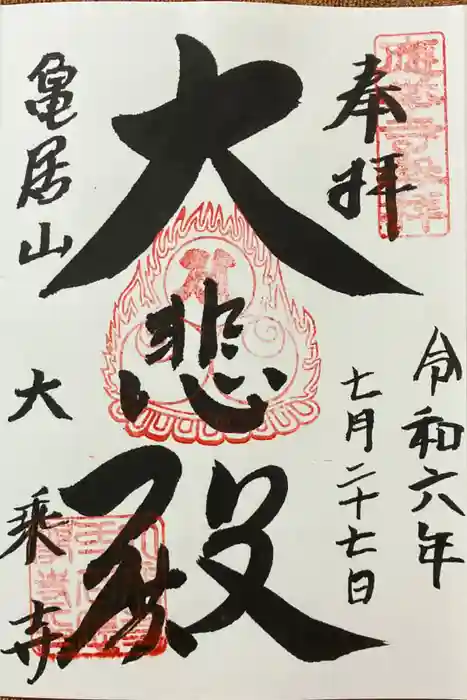 奉拝
令和六年
七月二十七日
大悲殿
亀居山
大乗寺